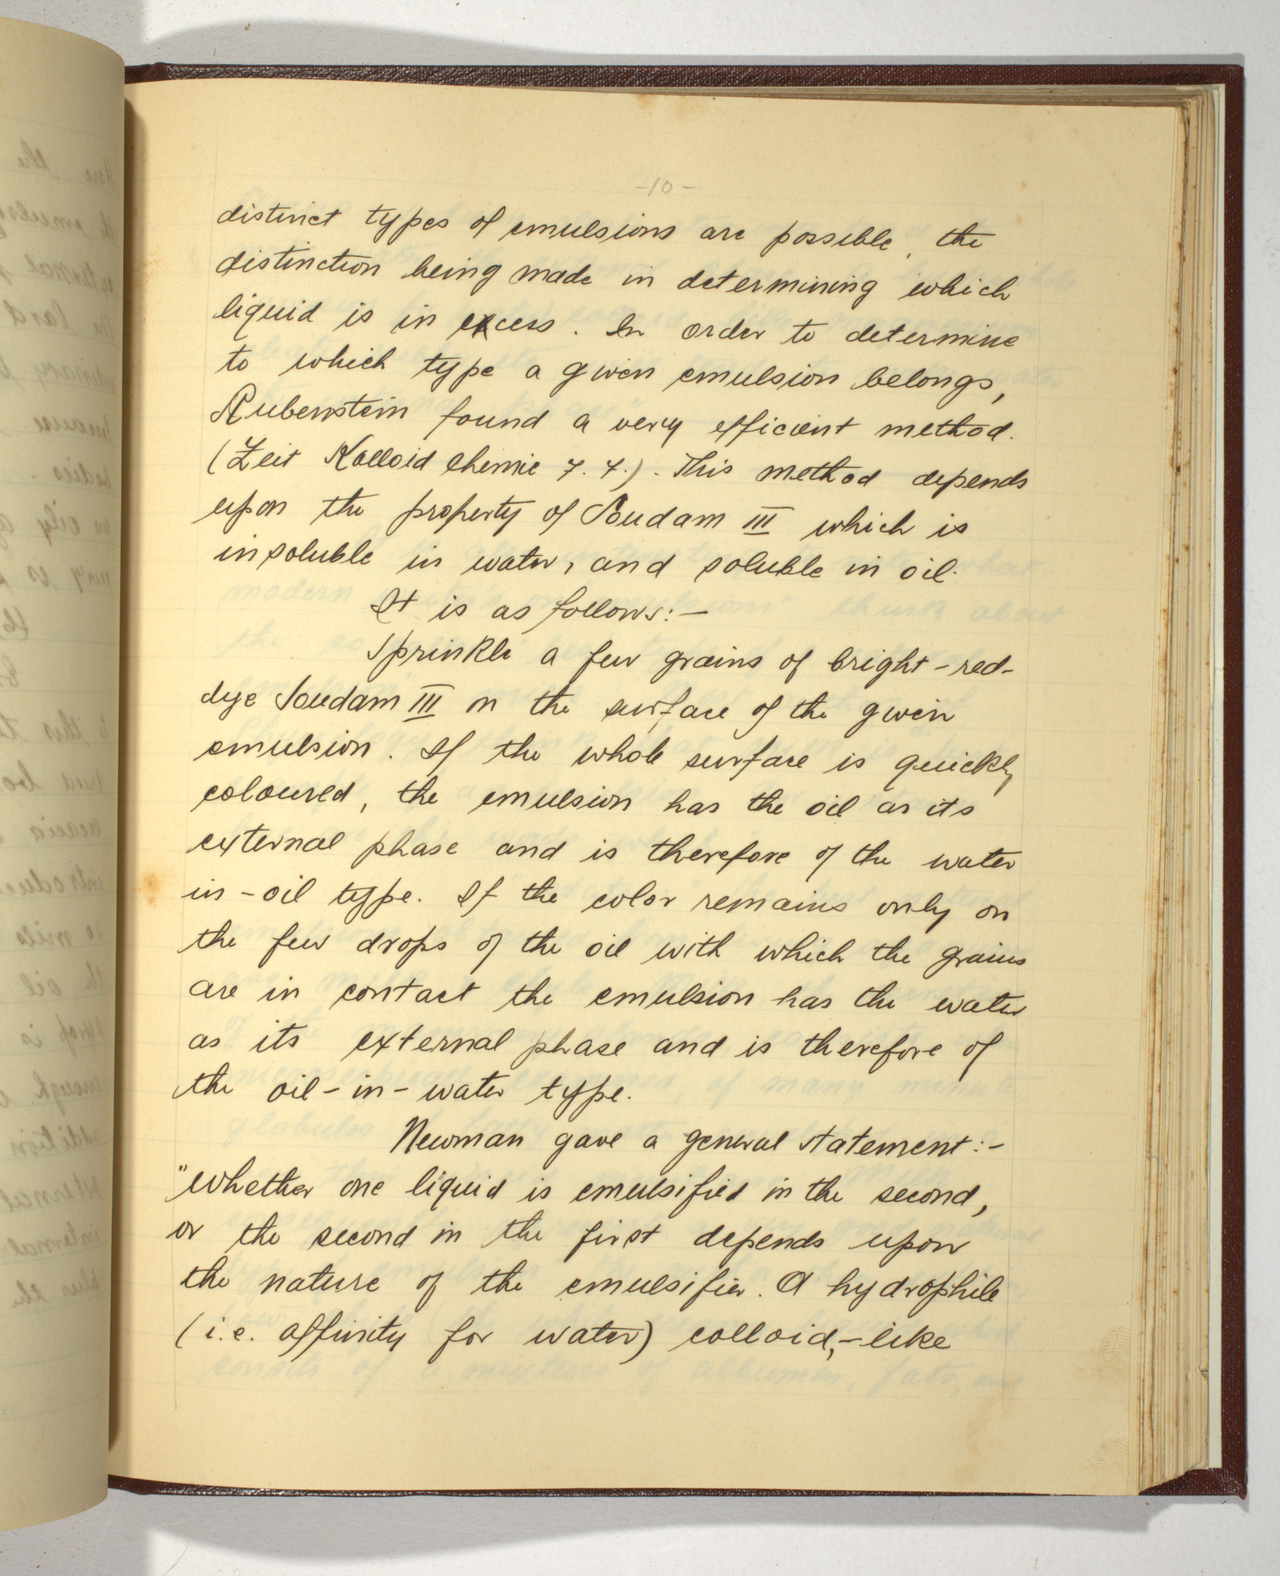 -10-
distinct types of emulsions are possible, the
distinction being made in determining which
liquid is in excess. In order to determine
to which type a given emulsion belongs,
Rubenstein found a very efficient method.
(Zeit Kolloid Chemie 7. 7.). This method depends
upon the property of Soudam III which is
insoluble in water, and soluble in oil.
It is as follows:-
Sprinkle a few grains of bright-red-
dye Soudam III on the surface of the given
emulsion. If the whole surface is quickly
coloured, the emulsion has the oil as its
external phase and is therefore of the water
in-oil type. If the color remains only on
the few drops of the oil with which the grains
are in contact the emulsion has the water
as its external phase and is therefore of
the oil-in-water type.
Newman gave a general statement:-
"Whether one liquid is emulsified in the second,
or the second in the first depends upon
the nature of the emulsifier. A hydrophile
(i.e. affinity for water) colloid,-like